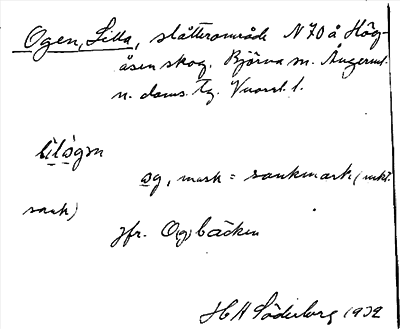 Ogen, Lilla, slåtterområde N70 å Hög-
åsen skog. Björna sn. Ångerml.
n. doms. Tg. 1.
lilògɐn
og, mark = sankmark (mkt.
sank)
jfr. Ogbäcken
H A Söderberg 1932